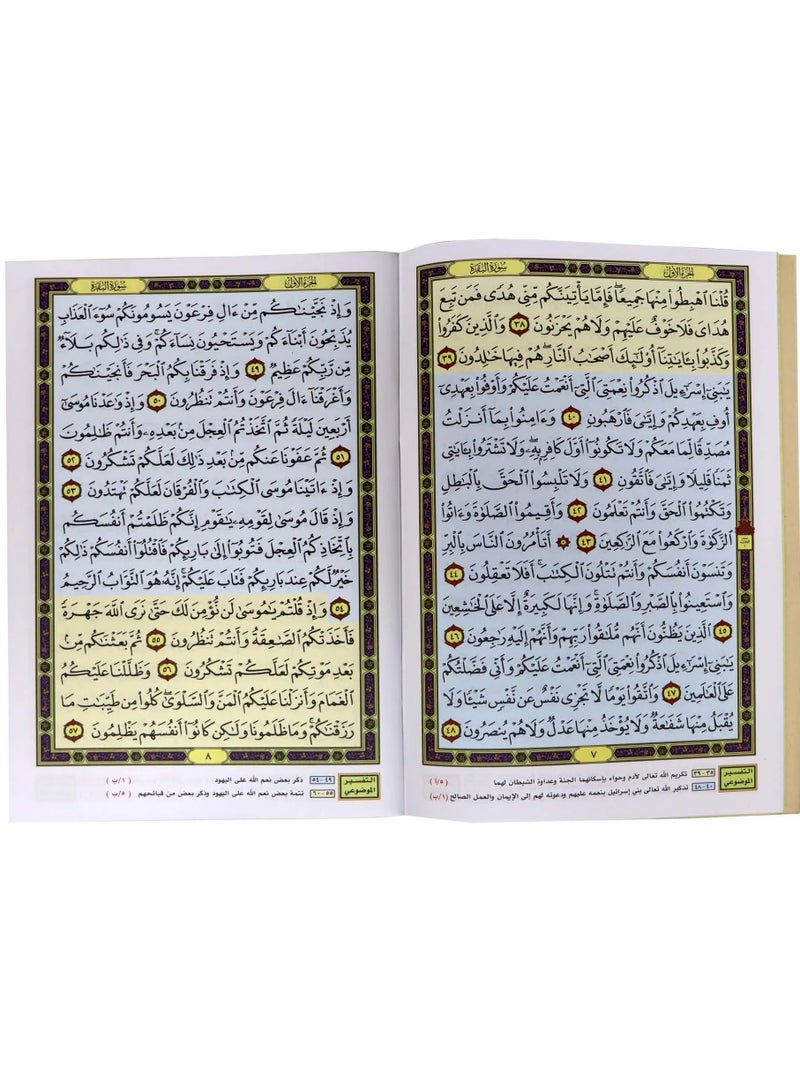 الجزء الأول
سورة البقرة
قُلْنَا ٱهْبِطُوا۟ مِنْهَا جَمِيعًۭا ۖ فَإِمَّا يَأْتِيَنَّكُم مِّنِّى هُدًۭى فَمَن تَبِعَ
هُدَاىَ فَلَا خَوْفٌ عَلَيْهِمْ وَلَا هُمْ يَحْزَنُونَ ٣٨ وَٱلَّذِينَ كَفَرُوا۟
وَكَذَّبُوا۟ بِـَٔايَـٰتِنَآ أُو۟لَـٰٓئِكَ أَصْحَـٰبُ ٱلنَّارِ ۖ هُمْ فِيهَا خَـٰلِدُونَ ٣٩
يَـٰبَنِىٓ إِسْرَٰٓءِيلَ ٱذْكُرُوا۟ نِعْمَتِىَ ٱلَّتِىٓ أَنْعَمْتُ عَلَيْكُمْ وَأَوْفُوا۟ بِعَهْدِىٓ
أُوفِ بِعَهْدِكُمْ وَإِيَّـٰىَ فَٱرْهَبُونِ ٤٠ وَءَامِنُوا۟ بِمَآ أَنزَلْتُ
مُصَدِّقًۭا لِّمَا مَعَكُمْ وَلَا تَكُونُوٓا۟ أَوَّلَ كَافِرٍۭ بِهِۦ ۖ وَلَا تَشْتَرُوا۟ بِـَٔايَـٰتِى
ثَمَنًۭا قَلِيلًۭا وَإِيَّـٰىَ فَٱتَّقُونِ ٤١ وَلَا تَلْبِسُوا۟ ٱلْحَقَّ بِٱلْبَـٰطِلِ
وَتَكْتُمُوا۟ ٱلْحَقَّ وَأَنتُمْ تَعْلَمُونَ ٤٢ وَأَقِيمُوا۟ ٱلصَّلَوٰةَ وَءَاتُوا۟
ٱلزَّكَوٰةَ وَٱرْكَعُوا۟ مَعَ ٱلرَّٰكِعِينَ ٤٣ ۞ أَتَأْمُرُونَ ٱلنَّاسَ بِٱلْبِرِّ
وَتَنسَوْنَ أَنفُسَكُمْ وَأَنتُمْ تَتْلُونَ ٱلْكِتَـٰبَ ۚ أَفَلَا تَعْقِلُونَ ٤٤
وَٱسْتَعِينُوا۟ بِٱلصَّبْرِ وَٱلصَّلَوٰةِ ۚ وَإِنَّهَا لَكَبِيرَةٌ إِلَّا عَلَى ٱلْخَـٰشِعِينَ
٤٥ ٱلَّذِينَ يَظُنُّونَ أَنَّهُم مُّلَـٰقُوا۟ رَبِّهِمْ وَأَنَّهُمْ إِلَيْهِ رَٰجِعُونَ ٤٦
يَـٰبَنِىٓ إِسْرَٰٓءِيلَ ٱذْكُرُوا۟ نِعْمَتِىَ ٱلَّتِىٓ أَنْعَمْتُ عَلَيْكُمْ وَأَنِّى فَضَّلْتُكُمْ
عَلَى ٱلْعَـٰلَمِينَ ٤٧ وَٱتَّقُوا۟ يَوْمًۭا لَّا تَجْزِى نَفْسٌ عَن نَّفْسٍۢ شَيْـًۭٔا وَلَا
يُقْبَلُ مِنْهَا شَفَـٰعَةٌۭ وَلَا يُؤْخَذُ مِنْهَا عَدْلٌۭ وَلَا هُمْ يُنصَرُونَ ٤٨
٧
التفسير الموضوعي
٣٥-٣٩ تكريم الله تعالى لآدم وحواء بإسكانهما الجنة وعداوة الشيطان لهما (٥/أ)
٤٠-٤٨ تذكير الله تعالى بني إسرائيل بنعمه عليهم ودعوته لهم إلى الإيمان والعمل الصالح (١/ب)
الجزء الأول
سورة البقرة
وَإِذْ نَجَّيْنَـٰكُم مِّنْ ءَالِ فِرْعَوْنَ يَسُومُونَكُمْ سُوٓءَ ٱلْعَذَابِ
يُذَبِّحُونَ أَبْنَآءَكُمْ وَيَسْتَحْيُونَ نِسَآءَكُمْ ۚ وَفِى ذَٰلِكُم بَلَآءٌۭ
مِّن رَّبِّكُمْ عَظِيمٌۭ ٤٩ وَإِذْ فَرَقْنَا بِكُمُ ٱلْبَحْرَ فَأَنجَيْنَـٰكُمْ
وَأَغْرَقْنَآ ءَالَ فِرْعَوْنَ وَأَنتُمْ تَنظُرُونَ ٥٠ وَإِذْ وَٰعَدْنَا مُوسَىٰٓ
أَرْبَعِينَ لَيْلَةًۭ ثُمَّ ٱتَّخَذْتُمُ ٱلْعِجْلَ مِنۢ بَعْدِهِۦ وَأَنتُمْ ظَـٰلِمُونَ
٥١ ثُمَّ عَفَوْنَا عَنكُم مِّنۢ بَعْدِ ذَٰلِكَ لَعَلَّكُمْ تَشْكُرُونَ ٥٢
وَإِذْ ءَاتَيْنَا مُوسَى ٱلْكِتَـٰبَ وَٱلْفُرْقَانَ لَعَلَّكُمْ تَهْتَدُونَ ٥٣
وَإِذْ قَالَ مُوسَىٰ لِقَوْمِهِۦ يَـٰقَوْمِ إِنَّكُمْ ظَلَمْتُمْ أَنفُسَكُم
بِٱتِّخَاذِكُمُ ٱلْعِجْلَ فَتُوبُوٓا۟ إِلَىٰ بَارِئِكُمْ فَٱقْتُلُوٓا۟ أَنفُسَكُمْ ذَٰلِكُمْ
خَيْرٌۭ لَّكُمْ عِندَ بَارِئِكُمْ فَتَابَ عَلَيْكُمْ ۚ إِنَّهُۥ هُوَ ٱلتَّوَّابُ ٱلرَّحِيمُ
٥٤ وَإِذْ قُلْتُمْ يَـٰمُوسَىٰ لَن نُّؤْمِنَ لَكَ حَتَّىٰ نَرَى ٱللَّهَ جَهْرَةًۭ
فَأَخَذَتْكُمُ ٱلصَّـٰعِقَةُ وَأَنتُمْ تَنظُرُونَ ٥٥ ثُمَّ بَعَثْنَـٰكُم مِّنۢ
بَعْدِ مَوْتِكُمْ لَعَلَّكُمْ تَشْكُرُونَ ٥٦ وَظَلَّلْنَا عَلَيْكُمُ
ٱلْغَمَامَ وَأَنزَلْنَا عَلَيْكُمُ ٱلْمَنَّ وَٱلسَّلْوَىٰ ۖ كُلُوا۟ مِن طَيِّبَـٰتِ مَا
رَزَقْنَـٰكُمْ ۖ وَمَا ظَلَمُونَا وَلَـٰكِن كَانُوٓا۟ أَنفُسَهُمْ يَظْلِمُونَ ٥٧
٨
التفسير الموضوعي
٤٩-٥٤ ذكر بعض نعم الله على اليهود (١/ب)
٥٥-٦٠ تتمة بعض نعم الله على اليهود وذكر بعض من قبائحهم (٥/ب)